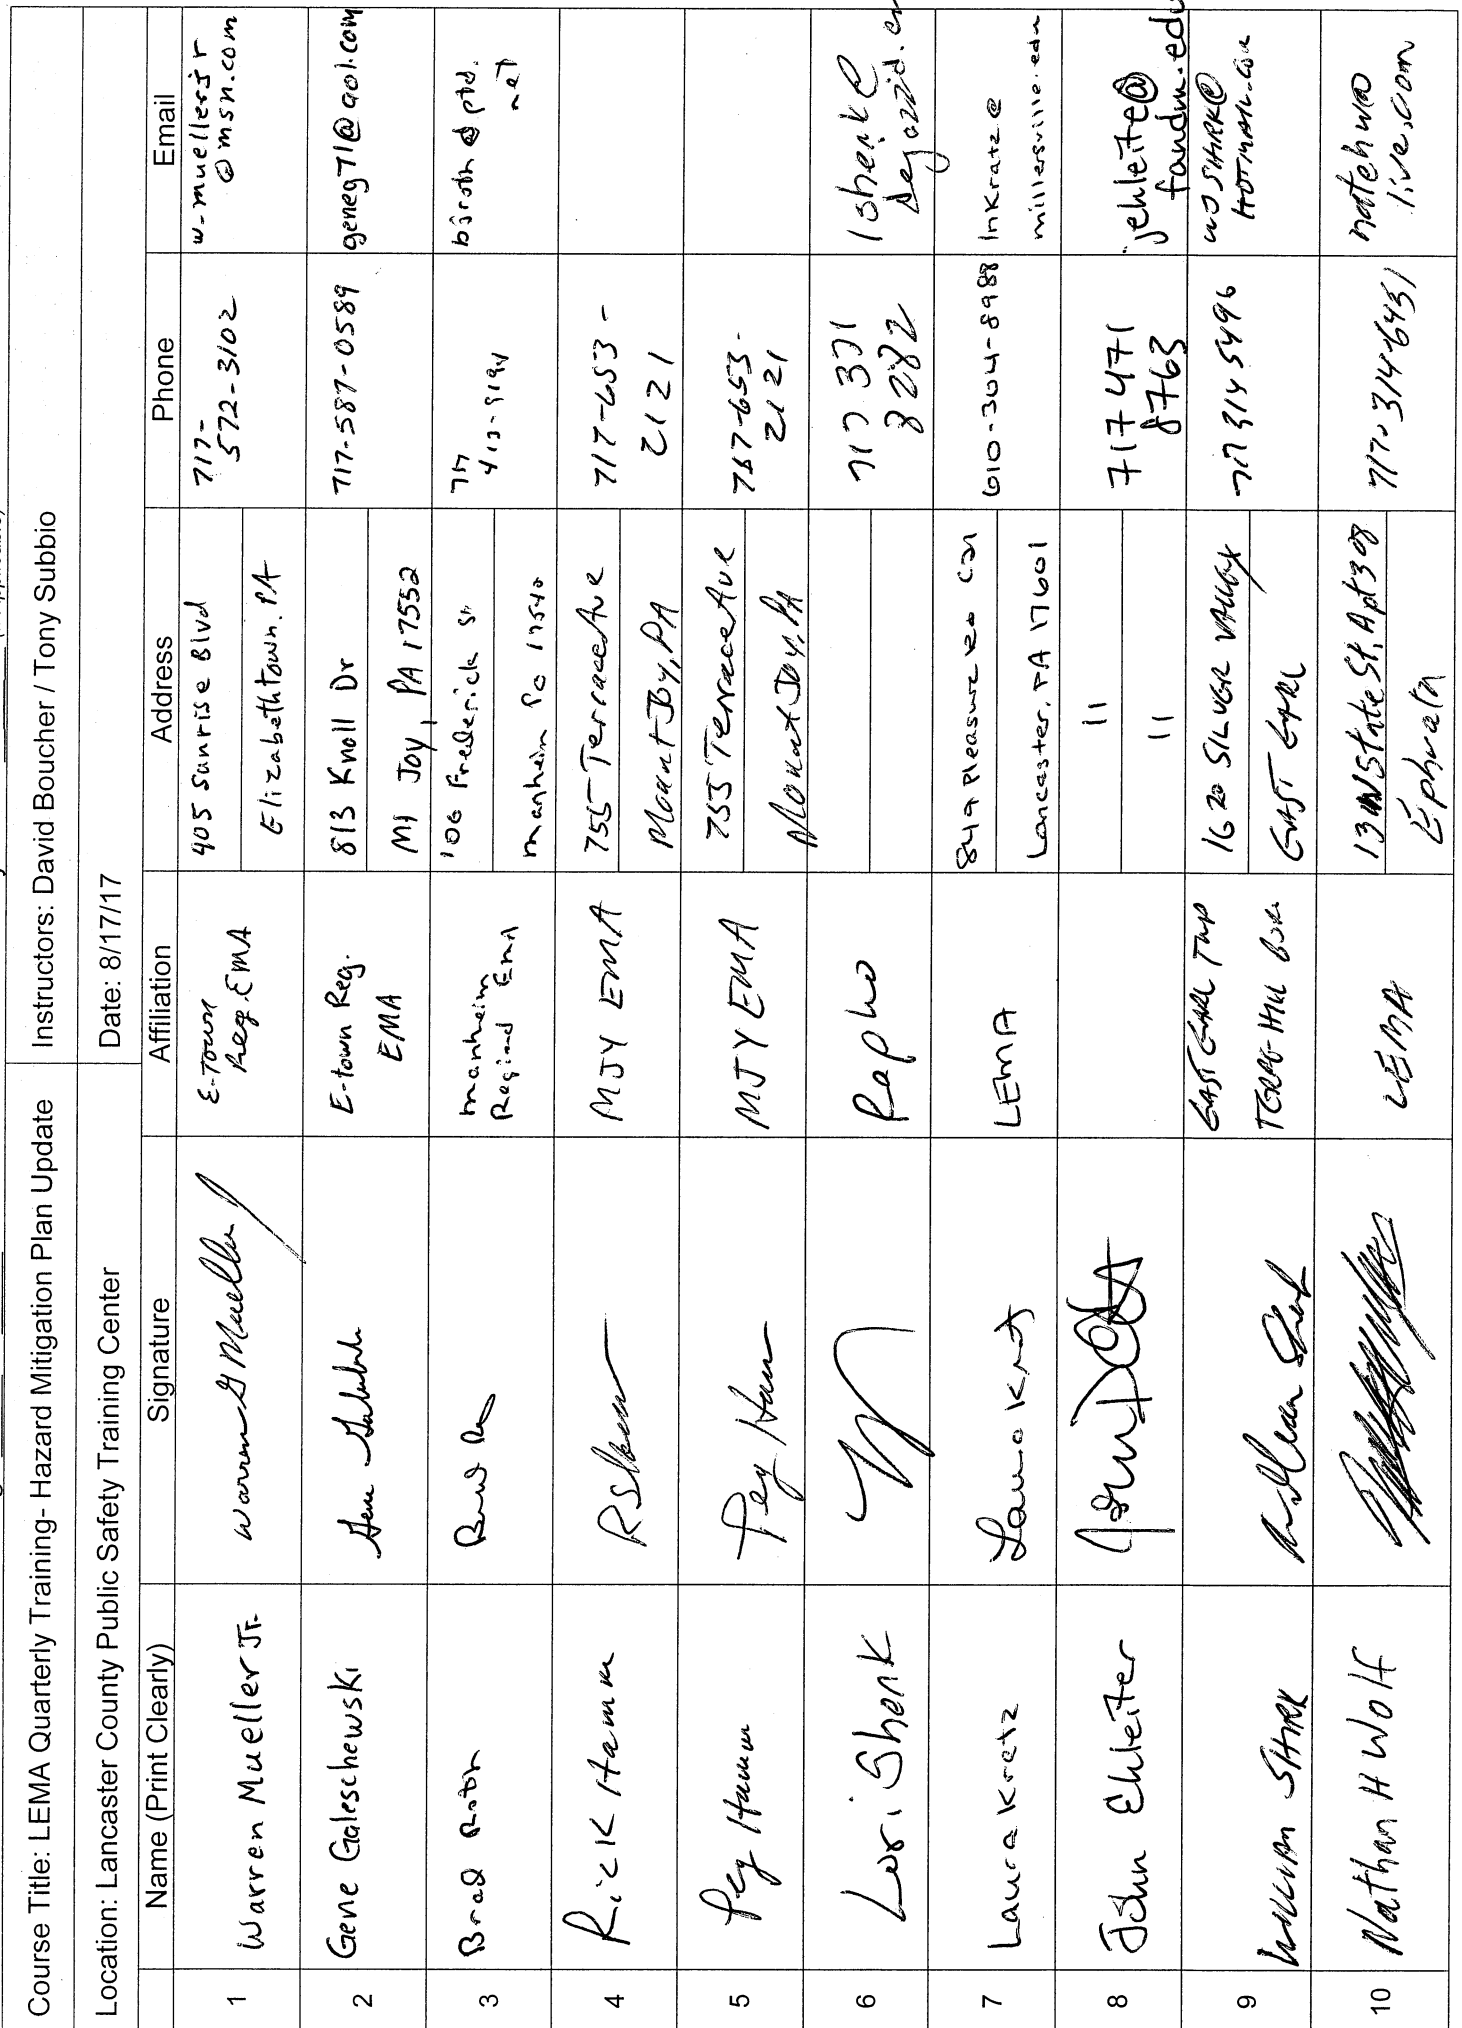 Course Title: LEMA Quarterly Training- Hazard Mitigation Plan Update
Instructors: David Boucher / Tony Subbio
Location: Lancaster County Public Safety Training Center
Date: 8/17/17
Name (Print Clearly) Signature Affiliation Address Phone Email
1 Warren Mueller Jr. Warren G Mueller
E-Town
Reg. EMA
905 Sunrise Blvd
Elizabethtown, PA
717-
572-3102
w-muellerjr
@msn.com
2 Gene Galeschewski
E-town Reg.
EMA
813 Knoll Dr
Mt Joy, PA 17552
717-587-0589
geneg71@aol.com
3 Brad Roth
Manheim
Regional EMA
106 Frederick St
Manheim Pa 17540
717
413-8194
bjroth@ptd.
net
4 Rick Hamm
MJY EMA
755 Terrace Ave
Mount Joy, PA
717-653-
2121
5 Peg Hamm Peg Hamm
MJY EMA
755 Terrace Ave
Mount Joy, PA
717-653-
2121
6 Lori Shenk
Rapho
717 371
8282
lshenk@
7 Laura Kratz Laura Kratz
LEMA
849 Pleasure Rd
Lancaster, PA 17601
610-304-8988
lnkratz@
millersville.edu
8 John Ehleiter
"
"
717 471
8763
jehleite@
fandm.edu
9 William Shirk
East Earl Twp
Terre Hill Boro
1620 Silver Valley
East Earl
717 314 5496
wjshirk@
hotmail.com
10 Nathan H Wolf
LEMA
13 W State St, Apt 308
Ephrata
717-314-6431
natehw@
live.com